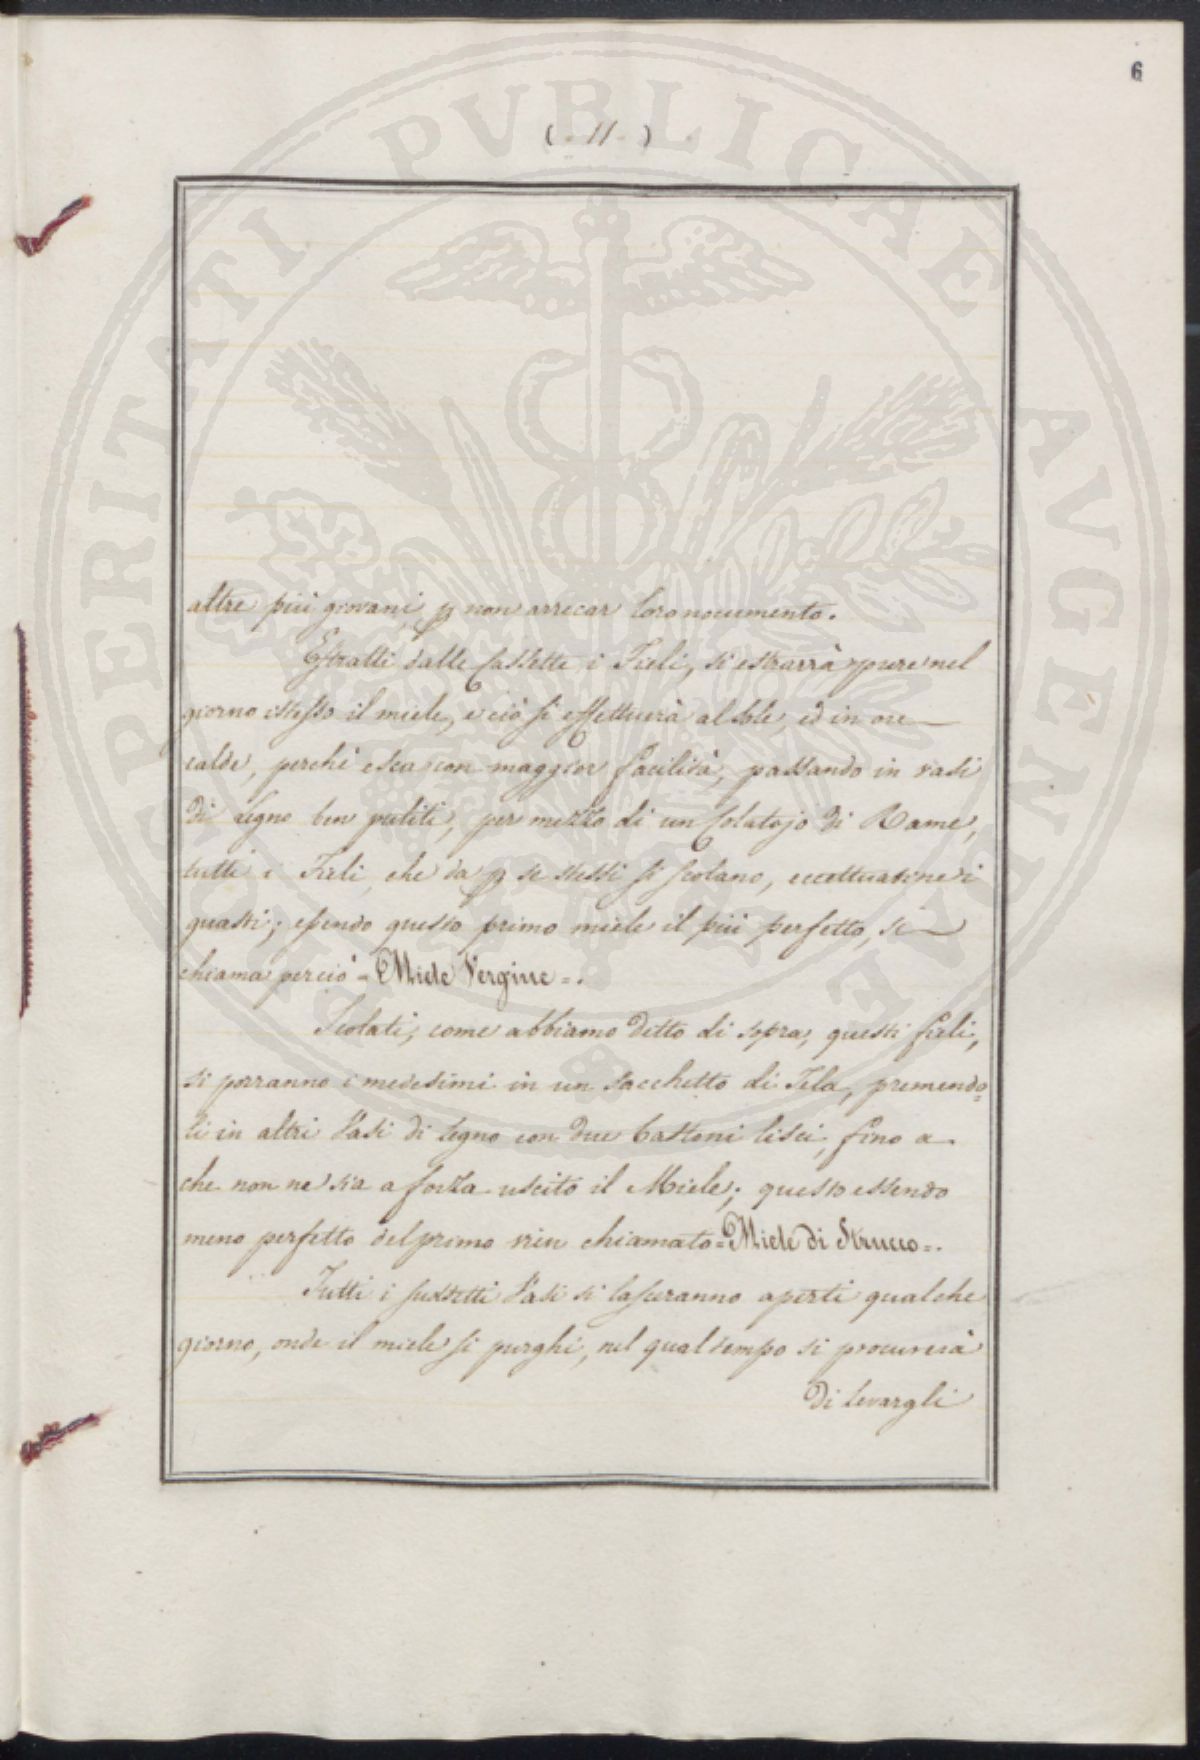 6
( · 11 · )
altre più giovani, p non arrecar loro nocumento.
Estratti dalle Cassette i Fieli, si estrarrà pure nel
giorno istesso il miele, e ciò si effettuerà al sole, ed in ore
calde, perchè esca con maggior facilità, passando in vasi
di Legno ben puliti, per mezzo di un Colatojo di Rame,
tutti i Fieli, che da p se stessi si scolano, eccettuatine i
guasti; essendo questo primo miele il più perfetto, si
chiama perciò = Miele Vergine =.
Scolati, come abbiamo detto di sopra, questi fieli,
si porranno i medesimi in un sacchetto di Tela, premendo=
li in altri Vasi di legno con due bastoni lisci, fino a
che non ne sia a forza uscito il Miele; questo essendo
meno perfetto del primo vien chiamato = Miele di Strucco =.
Tutti i suddetti Vasi si lasceranno aperti qualche
giorno, onde il miele si purghi, nel qual tempo si procurerà
di levargli
PROSPERITATI PUBLICAE AVGENDAE